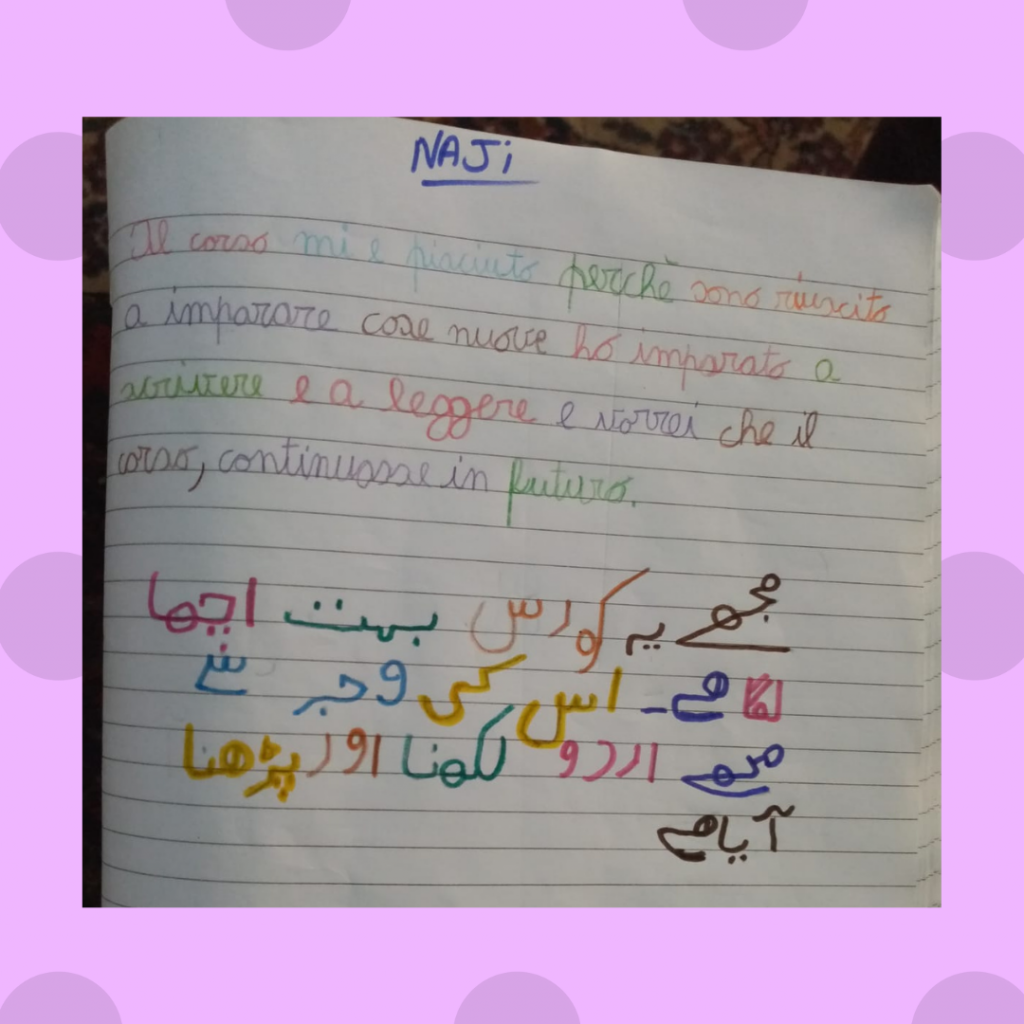 NAJi
Il corso mi e piaciuto perchè sono riuscito
a imparare cose nuove ho imparato a
scrivere e a leggere e vorrei che il
corso, continuasse in futuro.
مجھے یہ کورس بہت اچھا
لگا ھے۔ اس کی وجہ سے
مجھے اردو لکھنا اور پڑھنا
آیا ھے